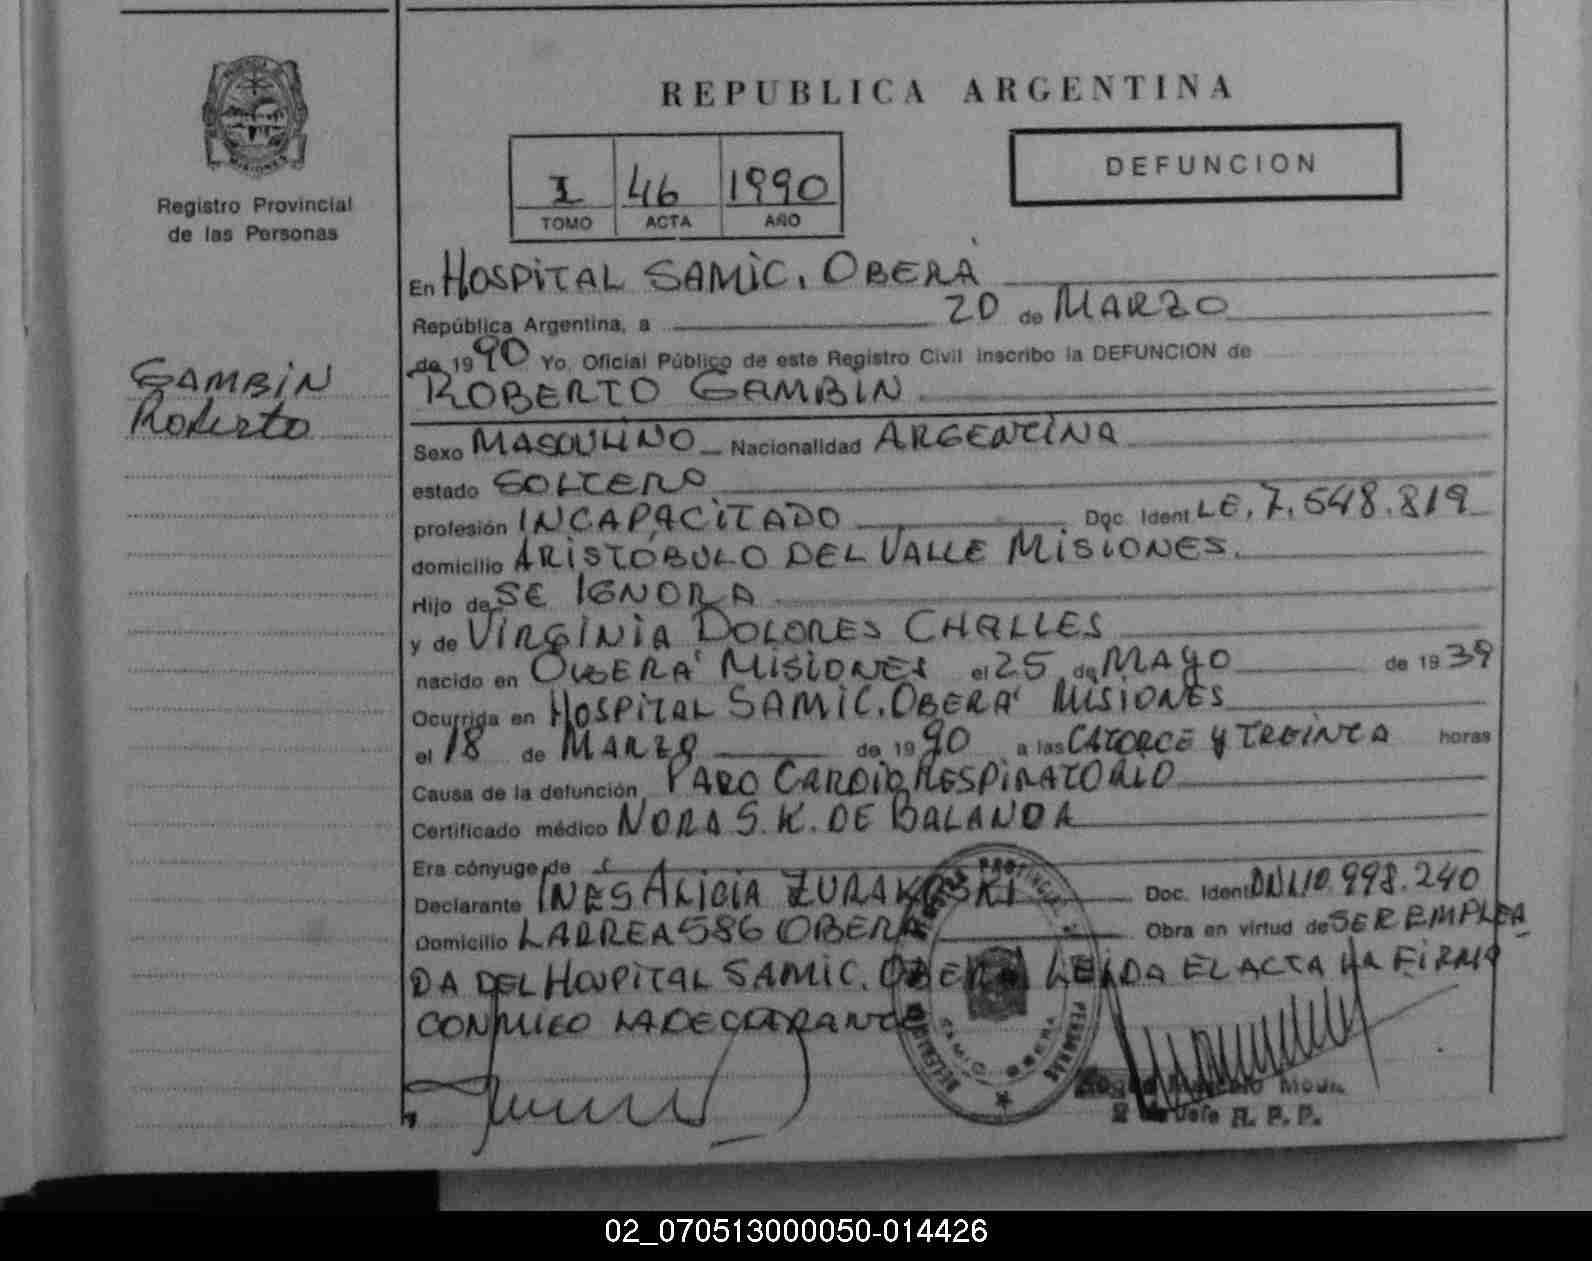 REPUBLICA ARGENTINA
DEFUNCION
I 46 1990
TOMO ACTA AÑO
Registro Provincial
de las Personas
GAMBIN
Roberto
En HOSPITAL SAMIC. OBERÁ
República Argentina, a 20 de MARZO
de 1990 Yo, Oficial Público de este Registro Civil inscribo la DEFUNCION de
ROBERTO GAMBIN
Sexo MASCULINO Nacionalidad ARGENTINA
estado SOLTERO
profesión INCAPACITADO Doc. Ident LE. 7.548.819
domicilio ARISTÓBULO DEL VALLE MISIONES.
Hijo de SE IGNORA
y de VIRGINIA DOLORES CHALLES
nacido en OBERÁ MISIONES el 25 de MAYO de 1939
Ocurrida en HOSPITAL SAMIC. OBERÁ MISIONES
el 18 de MARZO de 1990 a las CATORCE Y TREINTA horas
Causa de la defunción PARO CARDIO RESPIRATORIO
Certificado médico NORA S. K. DE BALANDA
Era cónyuge de
Declarante INES ALICIA ZURAKOSKI Doc. Ident DNI 10.998.240
Domicilio LARREA 586 OBERÁ Obra en virtud de SER EMPLEA
DA DEL HOSPITAL SAMIC. OBERÁ LEIDA EL ACTA LA FIRMA
CONMIGO LA DECLARANTE
R. P. P.
02_070513000050-014426